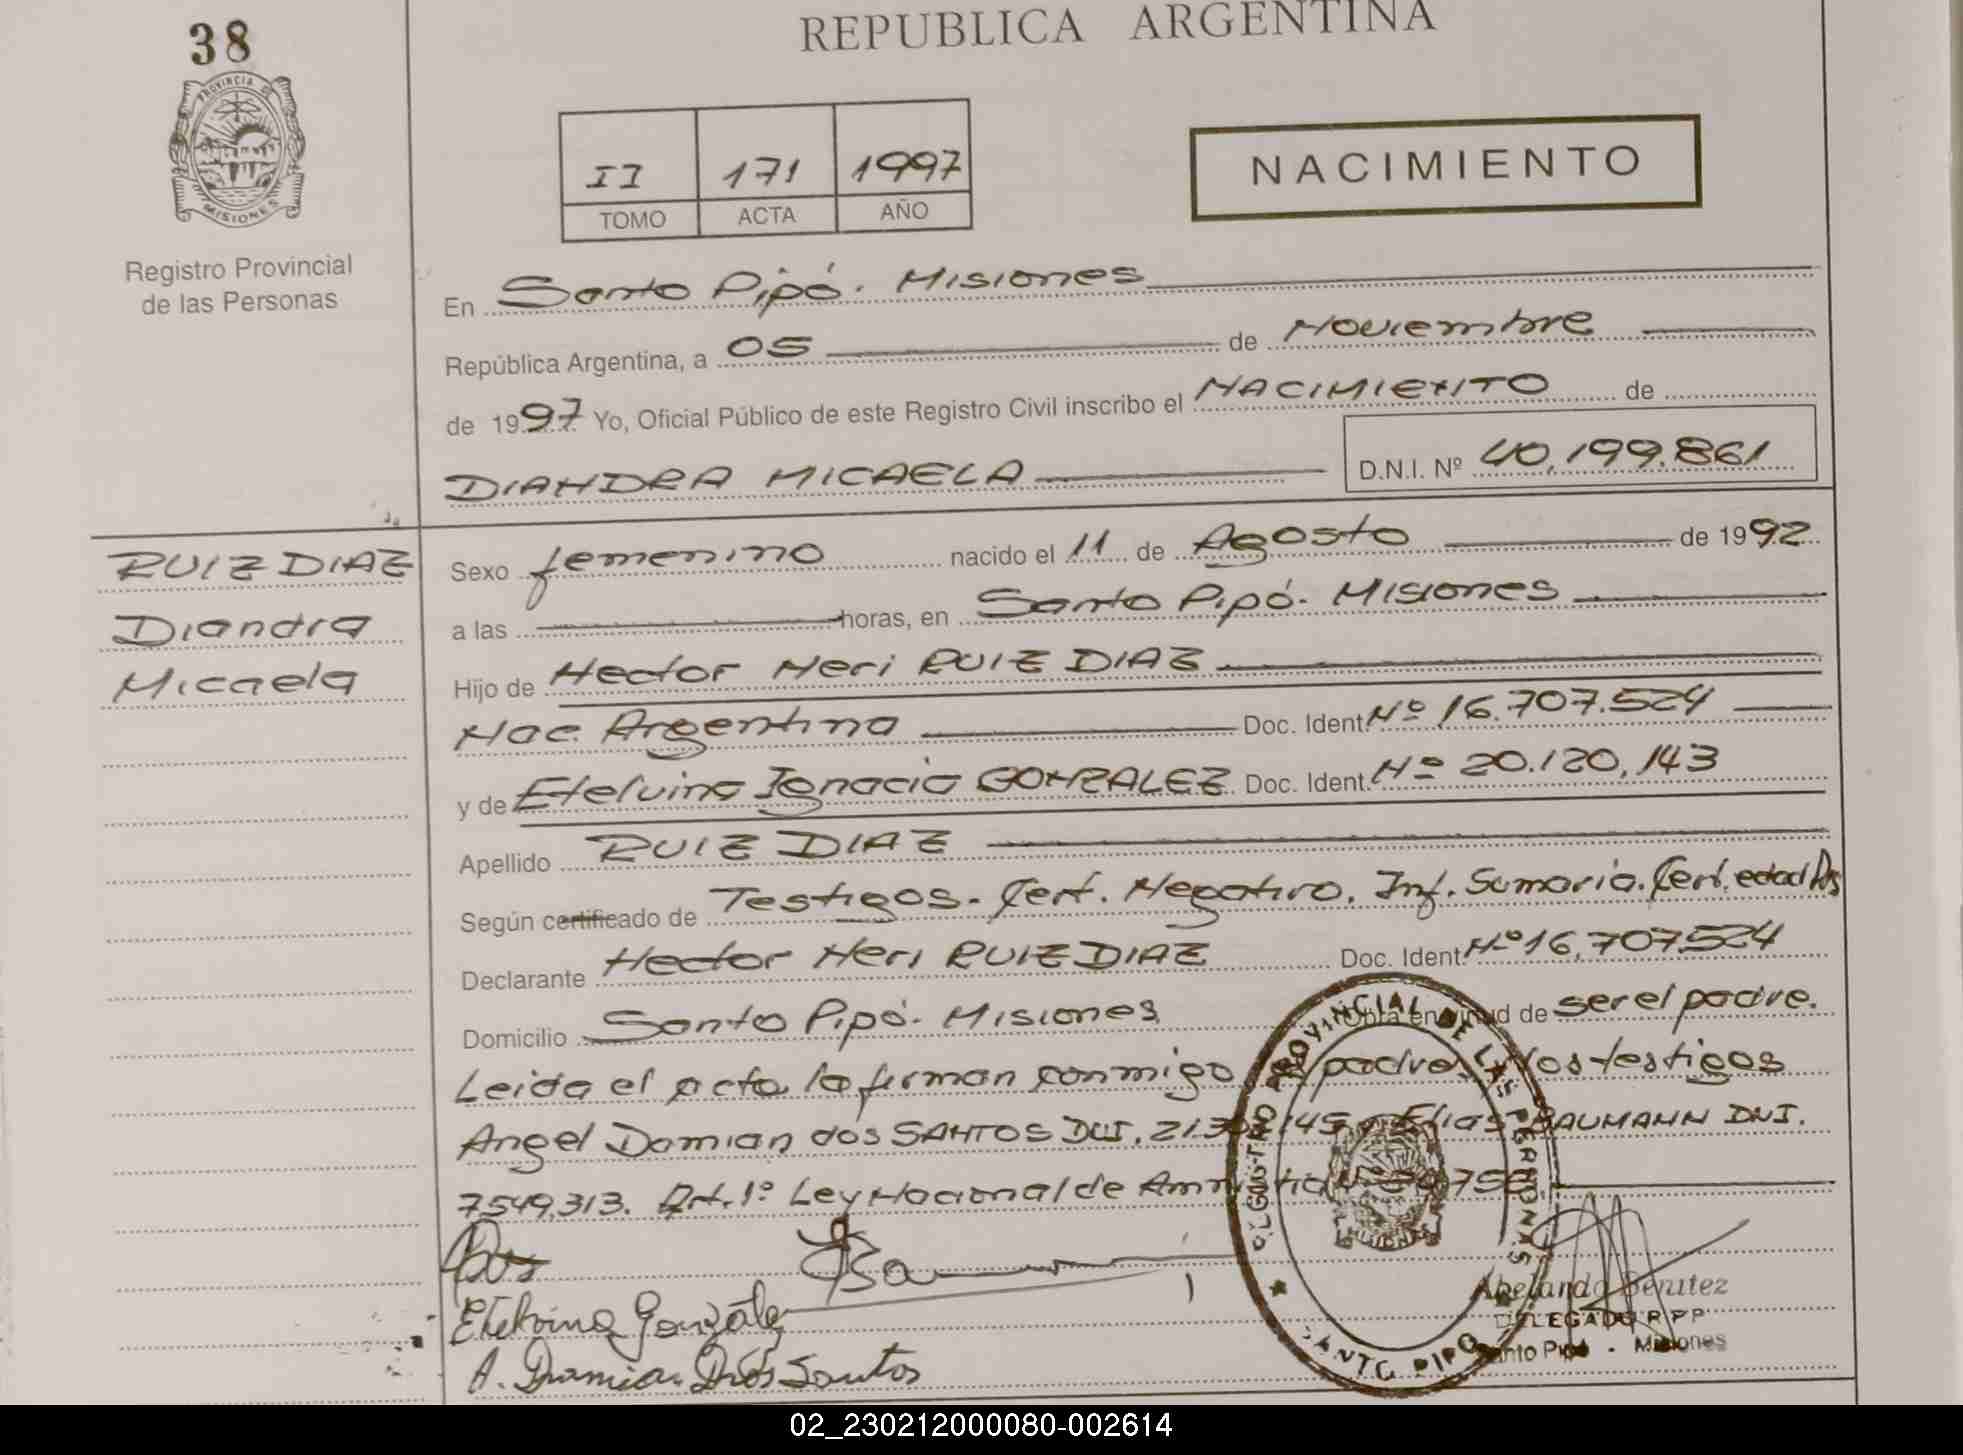 38
REPUBLICA ARGENTINA
PROVINCIA DE
MISIONES
Registro Provincial
de las Personas
II 171 1997
TOMO ACTA AÑO
NACIMIENTO
En Santo Pipó. Misiones
República Argentina, a 05 de Noviembre
de 1997 Yo, Oficial Público de este Registro Civil inscribo el NACIMIENTO de
DIANDRA MICAELA D.N.I. Nº 40.199.861
RUIZ DIAZ
Diandra
Micaela
Sexo femenino nacido el 11 de Agosto de 1992
a las horas, en Santo Pipó. Misiones
Hijo de Hector Neri RUIZ DIAZ
Nac. Argentina Doc. Ident. Nº 16.707.524
y de Etelvina Ignacia GONZALEZ Doc. Ident. Nº 20.120.143
Apellido RUIZ DIAZ
Según certificado de Testigos. Cert. Negativo. Inf. Sumaria. Cert. edad
Declarante Hector Neri RUIZ DIAZ Doc. Ident. Nº 16.707.524
Domicilio Santo Pipó. Misiones Obra en virtud de ser el padre.
Leida el acta la firman conmigo padre los testigos
Angel Damian dos SANTOS DNI. Elias BAUMANN DNI.
7.549.313. Art. 1º Ley Nacional de Amnistia
Etelvina González
A. Damian Dos Santos
REGISTRO PROVINCIAL DE LAS PERSONAS
SANTO PIPO
Abelardo Benitez
DELEGADO R P P
Santo Pipó - Misiones
02_230212000080-002614